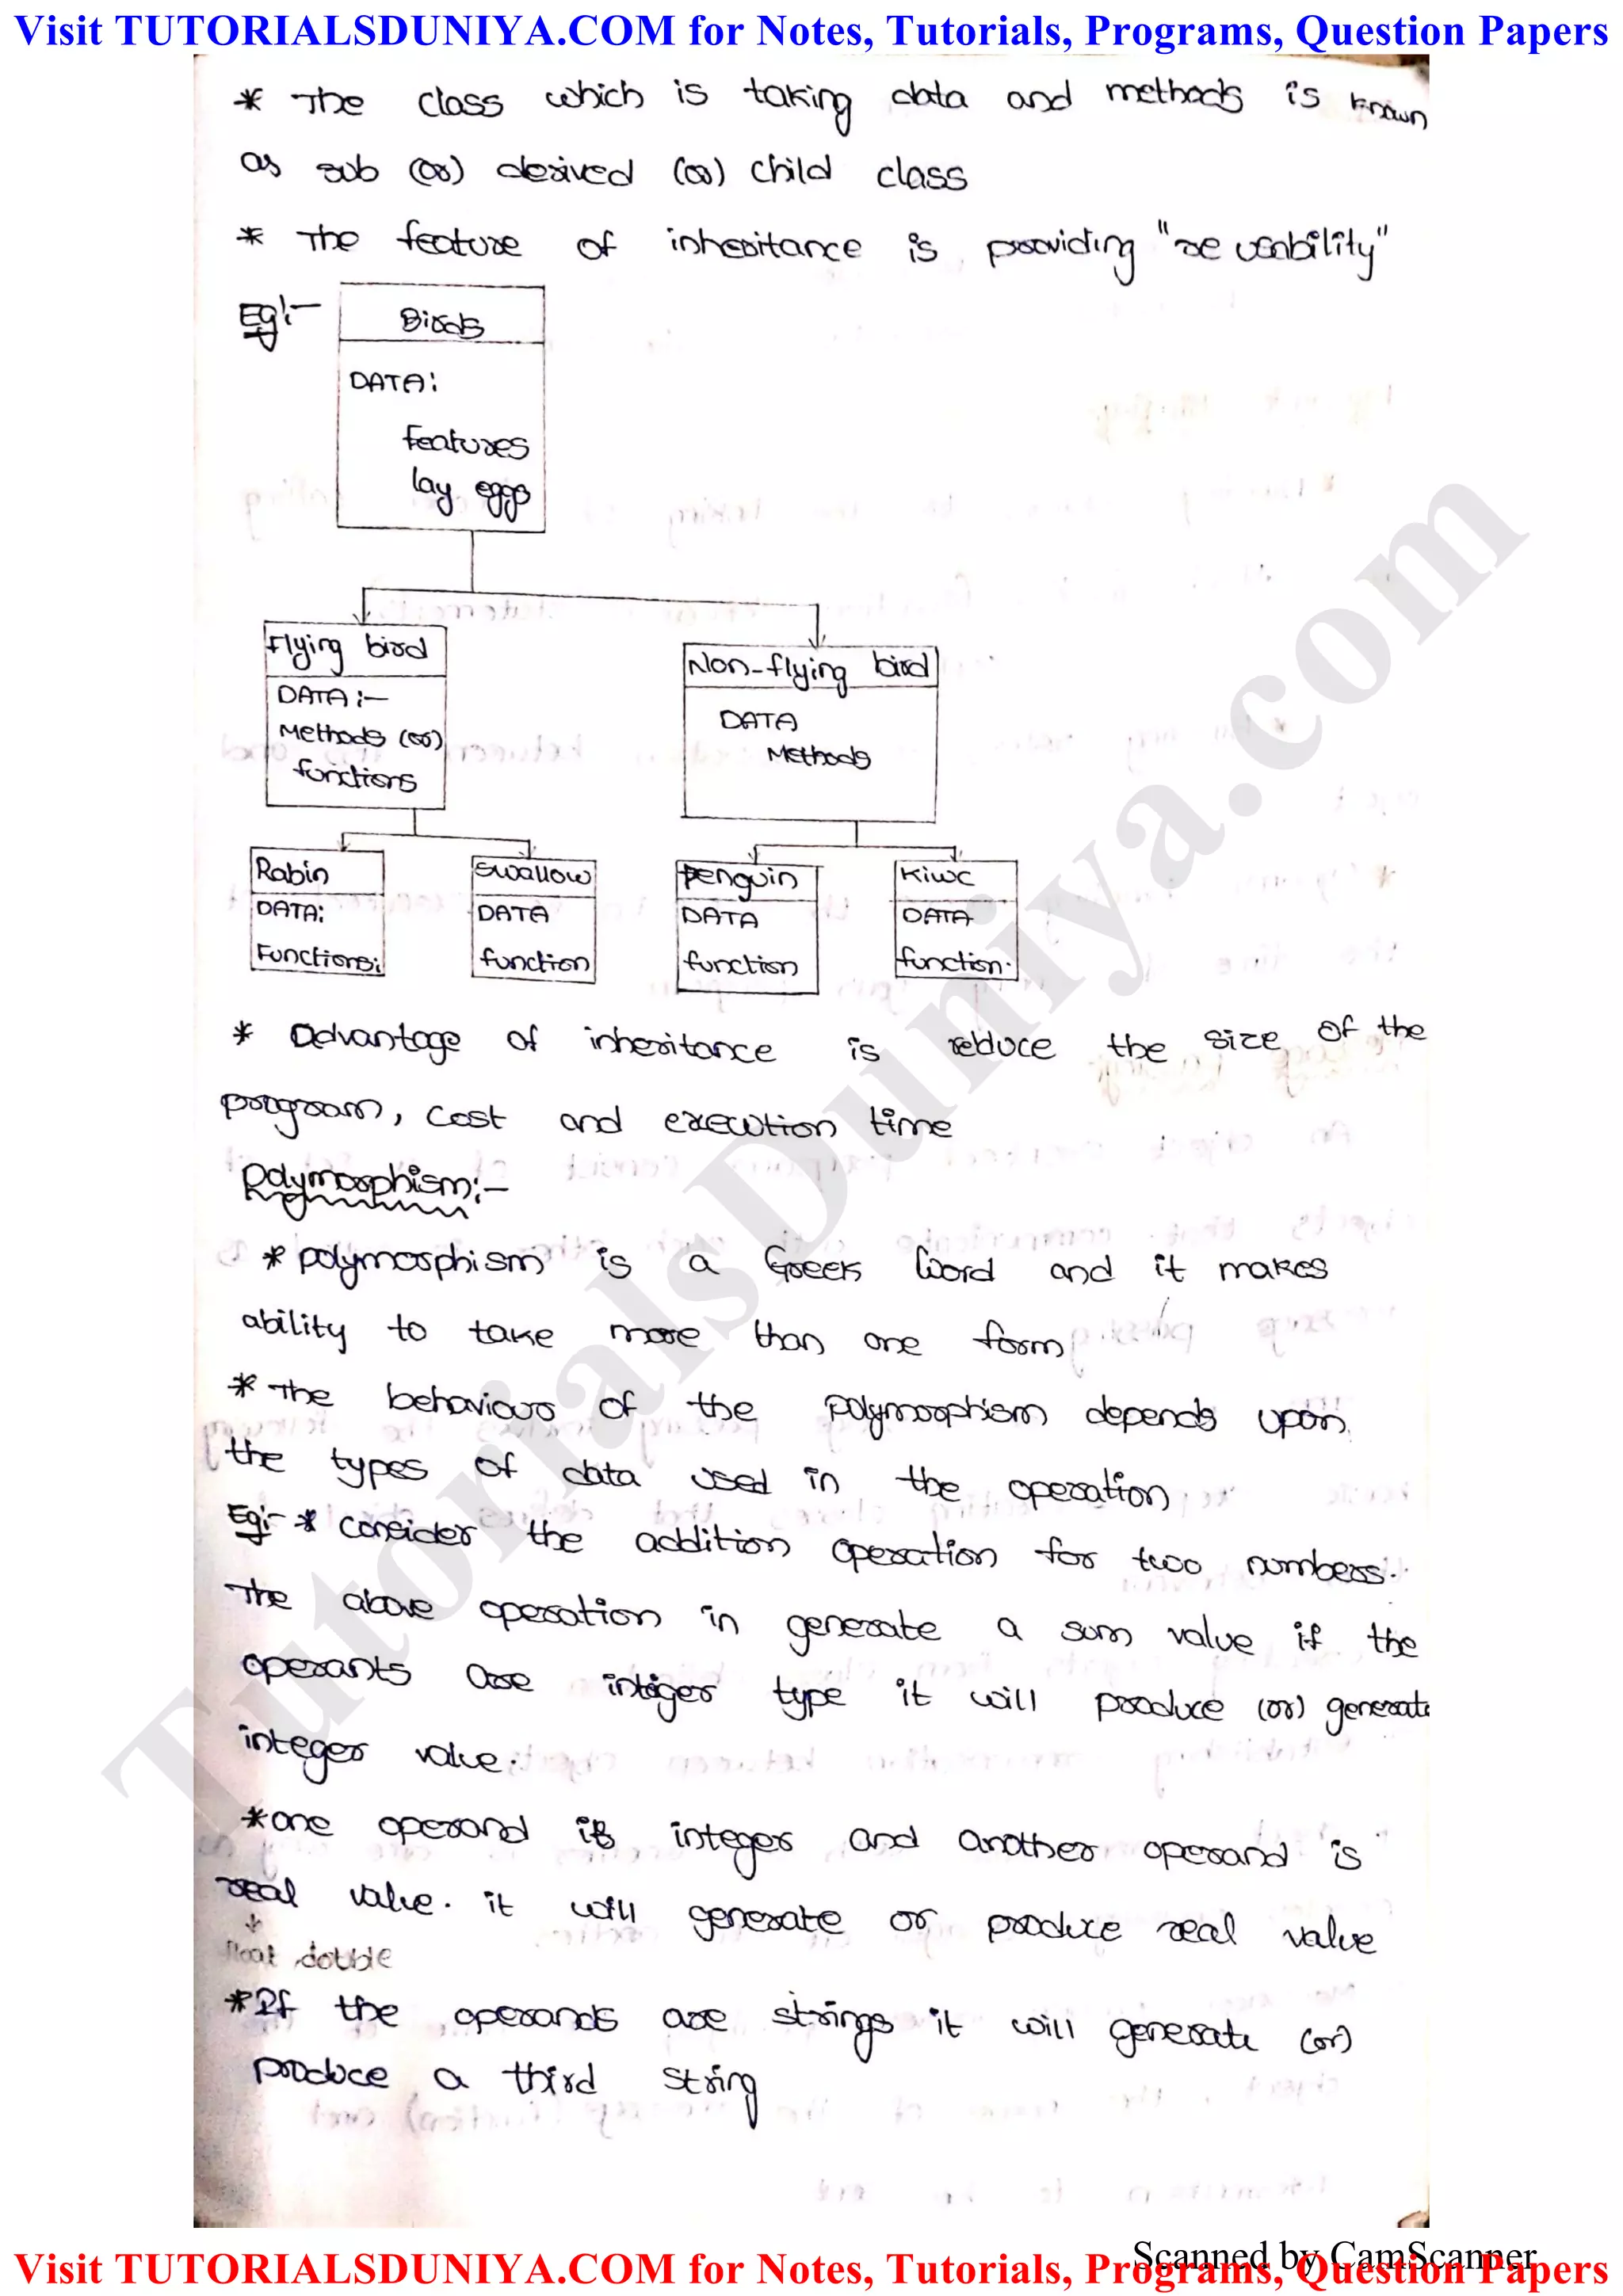 Visit TUTORIALSDUNIYA.COM for Notes, Tutorials, Programs, Question Papers
* The class which is taking data and methods is known
as sub (or) derived (or) child class
* The feature of inheritance is providing "re usability"
Eg:-
Birds
DATA:
features
lay eggs
Flying bird
DATA:-
Methods (or)
functions
Non-flying bird
DATA
Methods
Rabin
DATA:
Functions:
Swallow
DATA
function
Penguin
DATA
function
Kiwc
DATA
function.
* Advantage of inheritance is reduce the size of the
program, cost and execution time
Polymorphism:-
* polymorphism is a Greek Word and it makes
ability to take more than one form
* The behaviour of the polymorphism depends upon
the types of data used in the operation
Eg:- * consider the addition operation for two numbers.
The above operation in generate a sum value if the
operants are integer type it will produce (or) generate
integer value.
* one operand is integer and another operand is
real value. it will generate or produce real value
float, double
* If the operands are strings it will generate (or)
produce a third string
TutorialsDuniya.com
Scanned by CamScanner
Visit TUTORIALSDUNIYA.COM for Notes, Tutorials, Programs, Question Papers